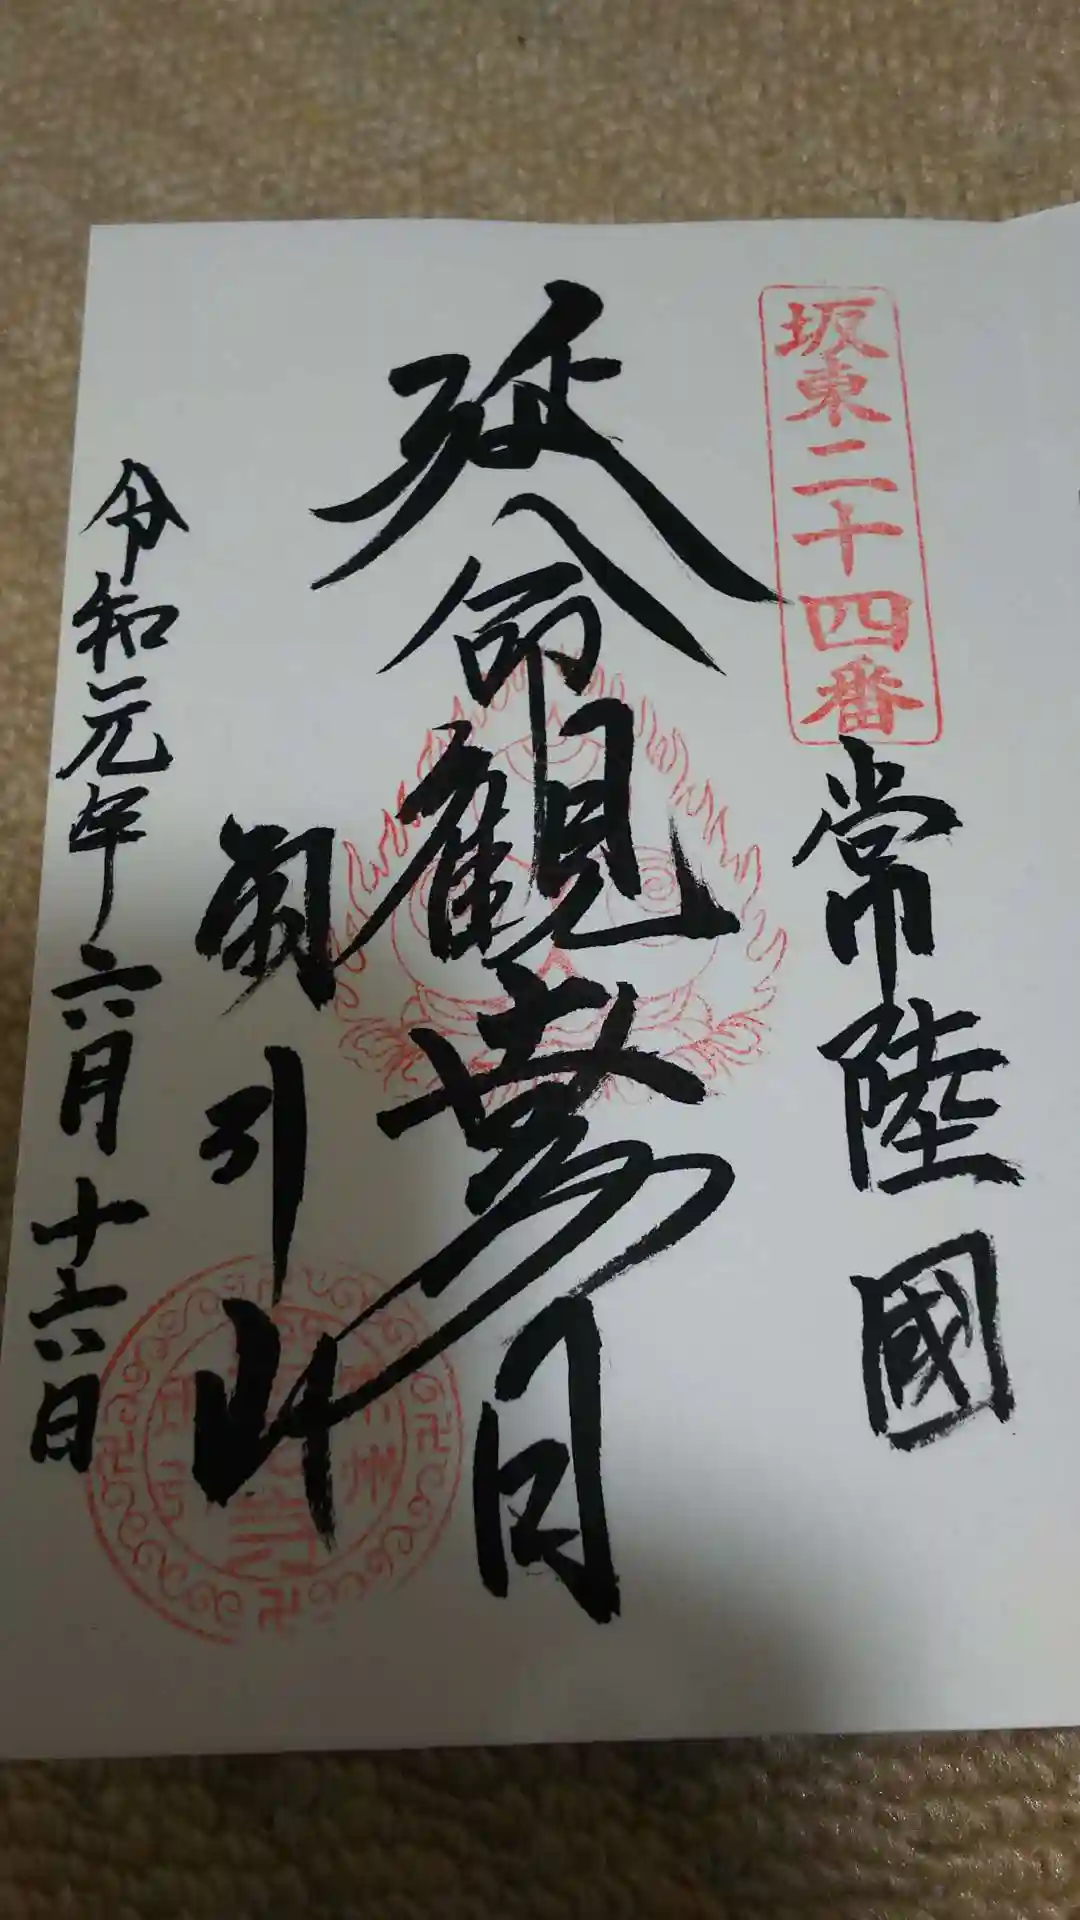 坂東二十四番
常陸國
延命観世音
雨引山
令和元年六月十六日